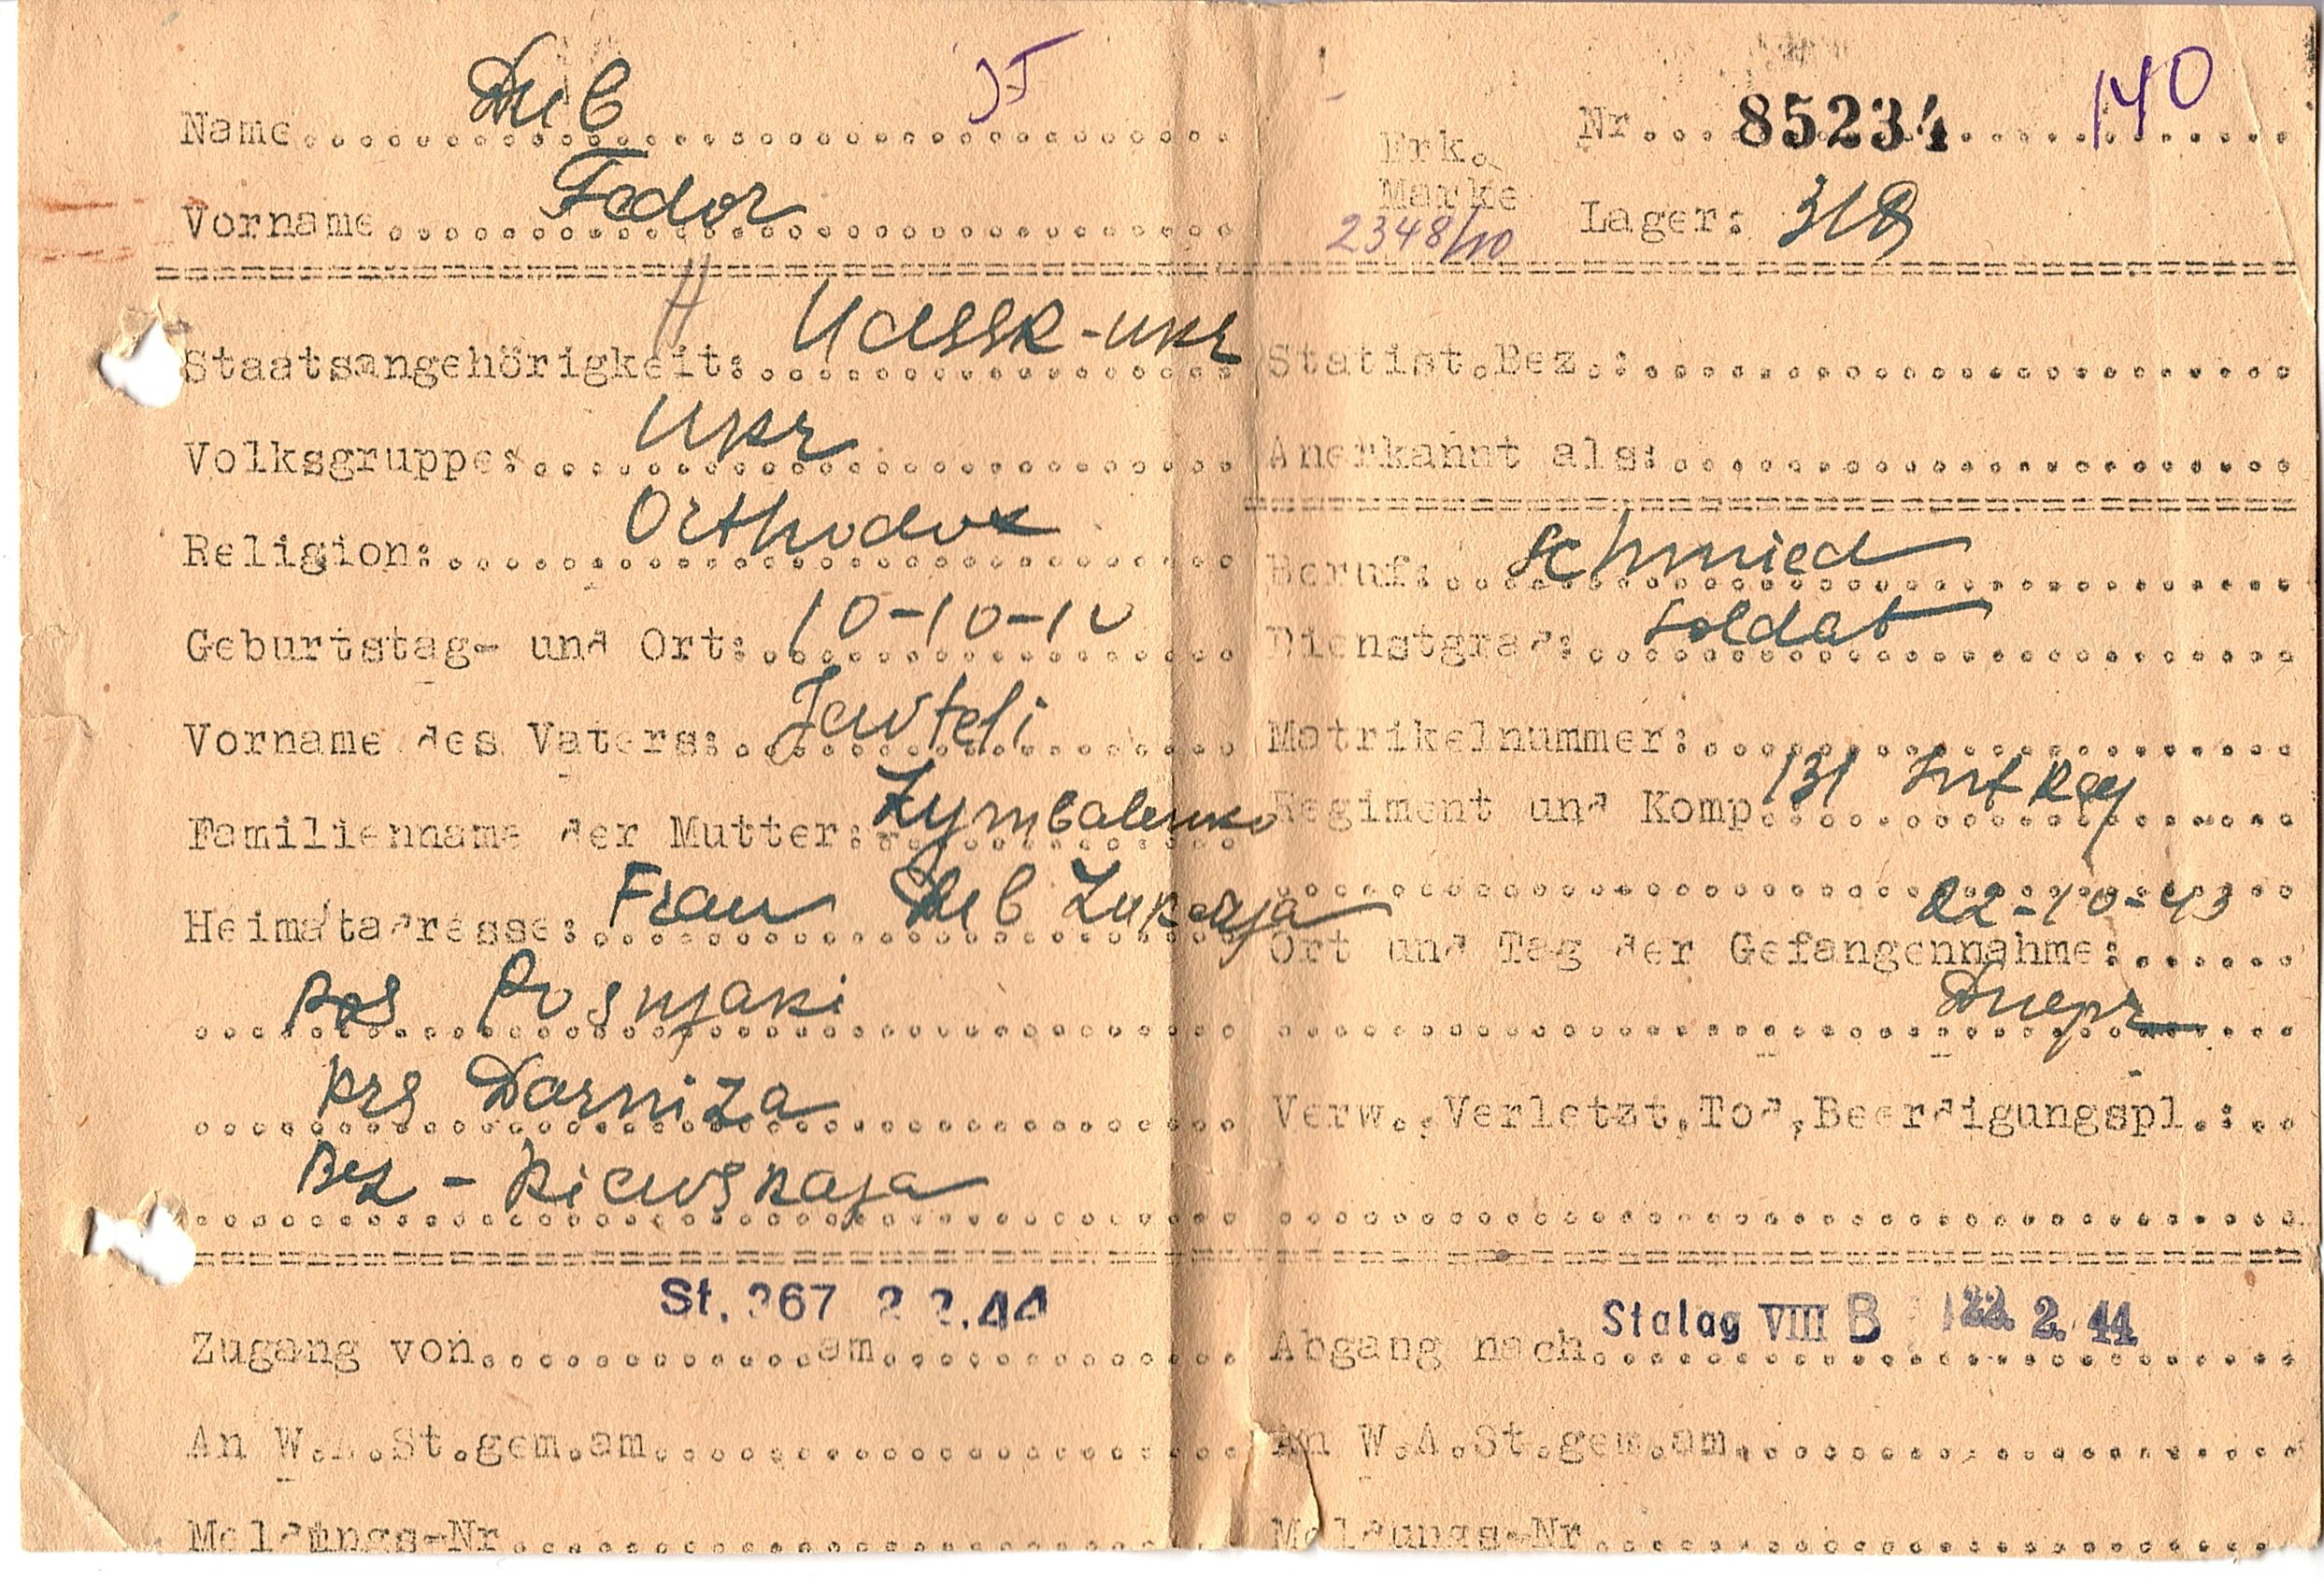 Name Dub
Vorname Fedor
Erk. Marke 2348/10
Nr. 85234 140
Lager: 318
Staatsangehörigkeit: UdSSR-ukr
Volksgruppe: Ukr
Religion: Orthodox
Geburtstag- und Ort: 10-10-10
Vorname des Vaters: Jewteli
Familienname der Mutter: Zymbalenko
Heimatadresse: Frau Dub
Posnjaki
Krs Darniza
Bez - Kiewskaja
Statist.Bez.:
Anerkannt als:
Beruf: Schmied
Dienstgrad: Soldat
Matrikelnummer:
Regiment und Komp.: 131 Inf Reg
22-10-43
Ort und Tag der Gefangennahme:
Dnepr
Verw., Verletzt, Tod, Beerdigungspl.:
St. 367 2 2.44
Zugang von am
An W.A.St.gem.am
Meldungs-Nr
Stalag VIII B 22. 2. 44
Abgang nach
An W.A.St.gem.am
Meldungs-Nr